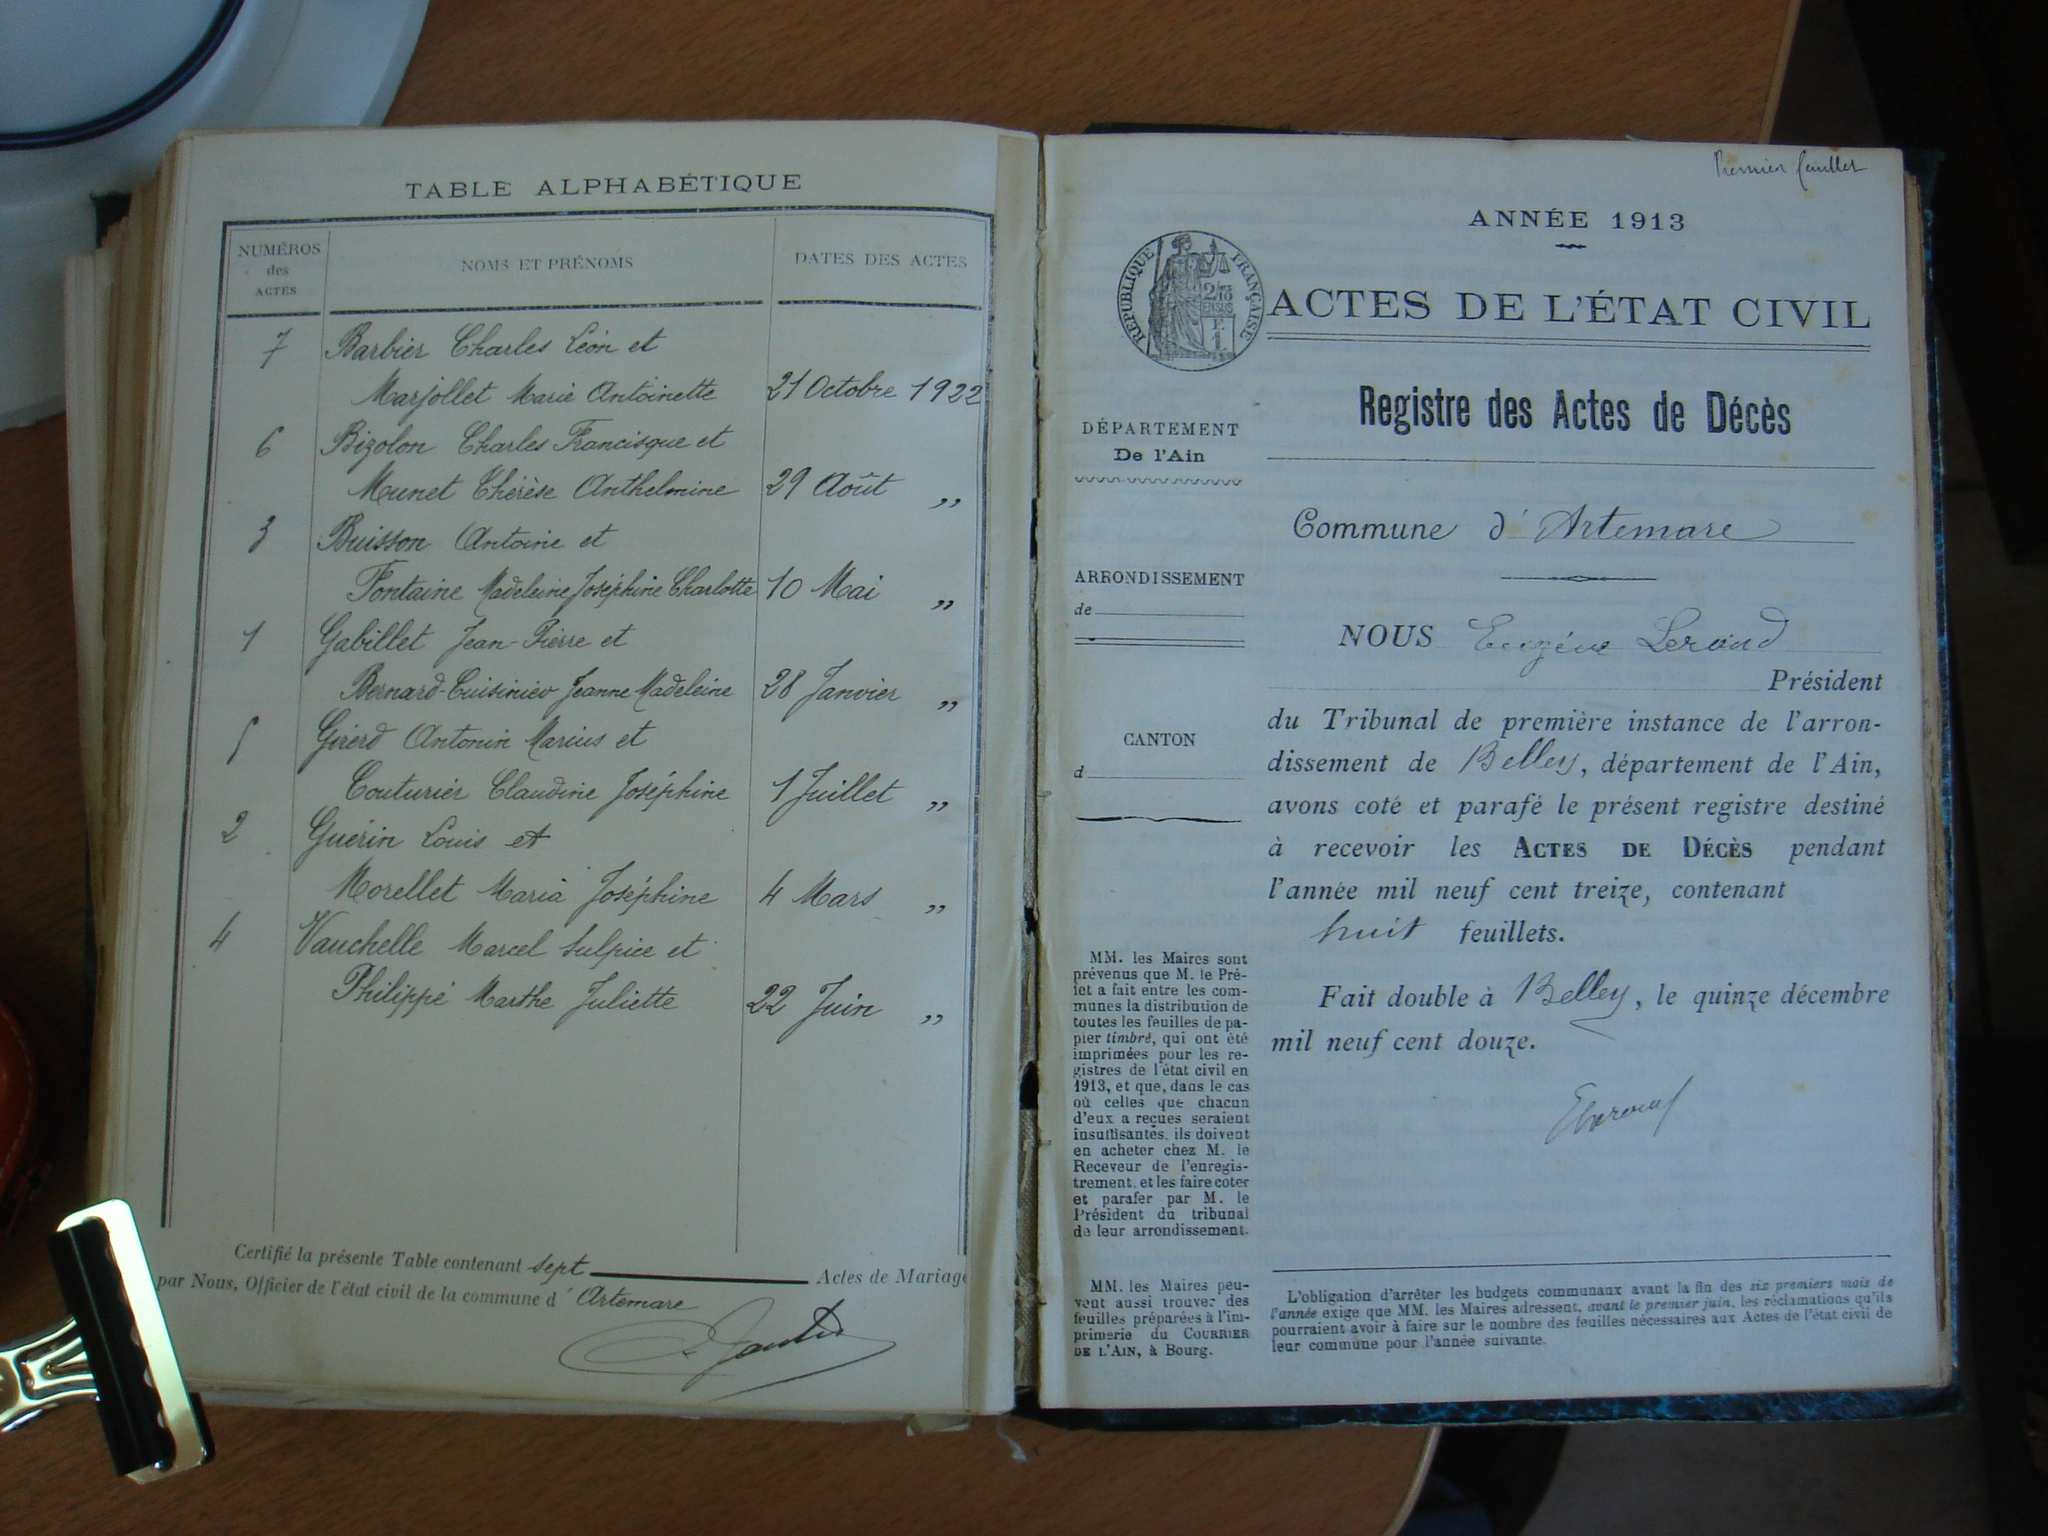 TABLE ALPHABÉTIQUE
NUMÉROS
des
ACTES
NOMS ET PRÉNOMS
DATES DES ACTES
7 Barbier Charles Léon et
Marjollet Marie Antoinette 21 Octobre 1922
6 Bizolon Charles Francisque et
Munet Thérèse Anthelmine 29 Août "
3 Buisson Antoine et
Fontaine Madeleine Joséphine Charlotte 10 Mai "
1 Gabillet Jean-Pierre et
Bernard-Cuisinier Jeanne Madeleine 28 Janvier "
5 Girerd Antonin Marius et
Couturier Claudine Joséphine 1 Juillet "
2 Guérin Louis et
Morellet Maria Joséphine 4 Mars "
4 Vauchelle Marcel Sulpice et
Philippe Marthe Juliette 22 Juin "
Certifié la présente Table contenant sept Actes de Mariage
par Nous, Officier de l'état civil de la commune d' Artemare
Premier feuillet
ANNÉE 1913
RÉPUBLIQUE FRANÇAISE
ACTES DE L'ÉTAT CIVIL
Registre des Actes de Décès
DÉPARTEMENT
De l'Ain
Commune d'Artemare
ARRONDISSEMENT
de
NOUS Eugène
Président
du Tribunal de première instance de l'arron-
dissement de Belley, département de l'Ain,
avons coté et parafé le présent registre destiné
à recevoir les ACTES DE DÉCÈS pendant
l'année mil neuf cent treize, contenant
huit feuillets.
Fait double à Belley, le quinze décembre
mil neuf cent douze.
CANTON
d
MM. les Maires sont
prévenus que M. le Pré-
fet a fait entre les com-
munes la distribution de
toutes les feuilles de pa-
pier timbré, qui ont été
imprimées pour les re-
gistres de l'état civil en
1913, et que, dans le cas
où celles que chacun
d'eux a reçues seraient
insuffisantes, ils doivent
en acheter chez M. le
Receveur de l'enregis-
trement, et les faire coter
et parafer par M. le
Président du tribunal
de leur arrondissement.
MM. les Maires peu-
vent aussi trouver des
feuilles préparées à l'im-
primerie du COURRIER
DE L'AIN, à Bourg.
L'obligation d'arrêter les budgets communaux avant la fin des six premiers mois de
l'année exige que MM. les Maires adressent, avant le premier juin, les réclamations qu'ils
pourraient avoir à faire sur le nombre des feuilles nécessaires aux Actes de l'état civil de
leur commune pour l'année suivante.